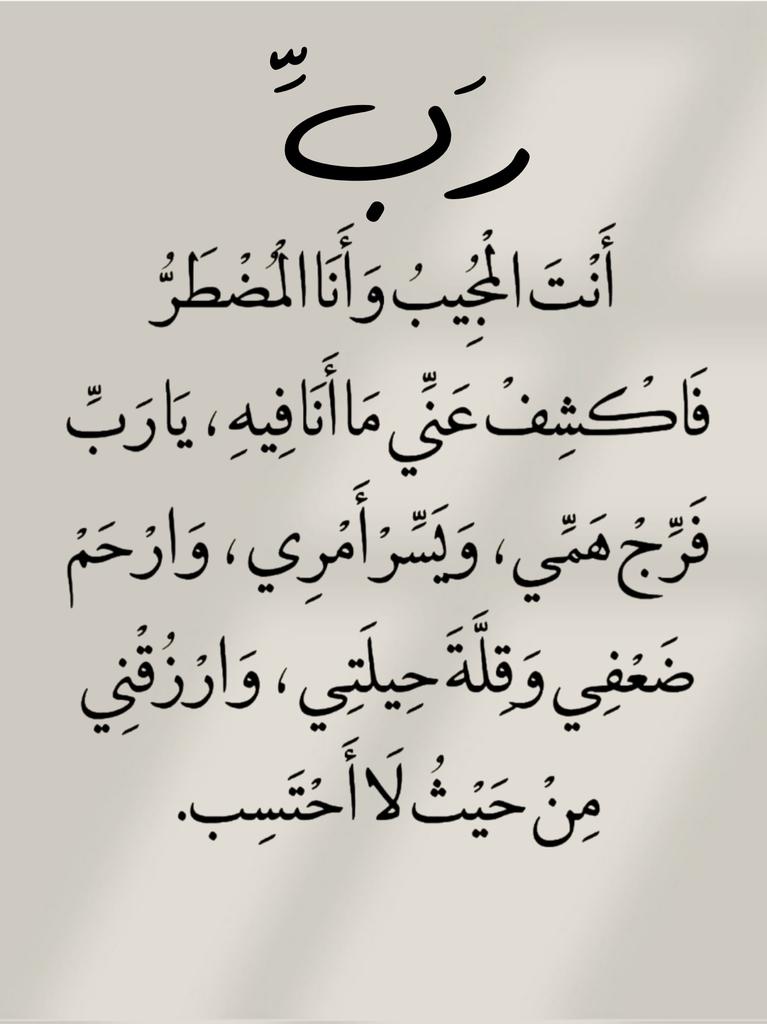 رَبِّ
أَنْتَ الْمُجِيبُ وَأَنَا الْمُضْطَرُّ
فَاكْشِفْ عَنِّي مَا أَنَا فِيهِ، يَا رَبِّ
فَرِّجْ هَمِّي، وَيَسِّرْ أَمْرِي، وَارْحَمْ
ضَعْفِي وَقِلَّةَ حِيلَتِي، وَارْزُقْنِي
مِنْ حَيْثُ لَا أَحْتَسِب.